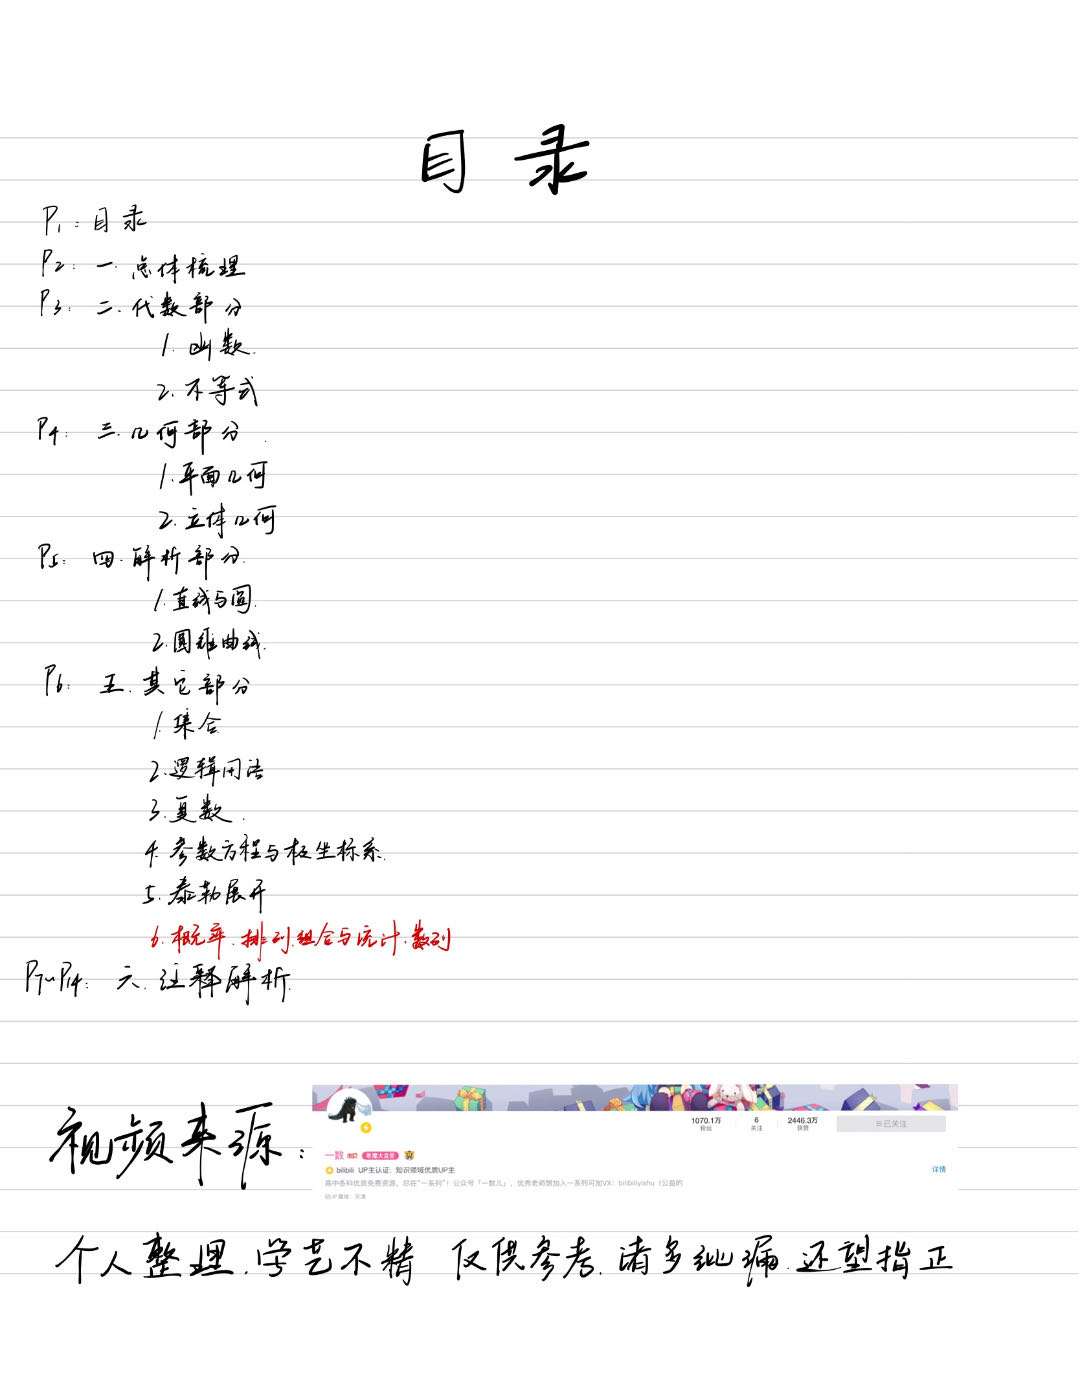 目录
P1:目录
P2:一.总体梳理
P3:二.代数部分
1.函数.
2.不等式
P4:三.几何部分.
1.平面几何
2.立体几何
P5:四.解析部分.
1.直线与圆.
2.圆锥曲线.
P6:五.其它部分
1.集合
2.逻辑用语
3.复数.
4.参数方程与极坐标系.
5.泰勒展开
6.概率.排列.组合与统计.数列
P7~P14:六.注释解析.
视频来源:
1070.1万 6 2446.3万
粉丝 关注 获赞
已关注
一数 年度大会员
bilibili UP主认证:知识领域优质UP主
详情
高中各科优质免费资源,尽在"一系列"!公众号「一数儿」,优秀老师想加入一系列可加VX:bilibiliyishu(公益的
IP属地:天津
个人整理.学艺不精 仅供参考.诸多纰漏.还望指正